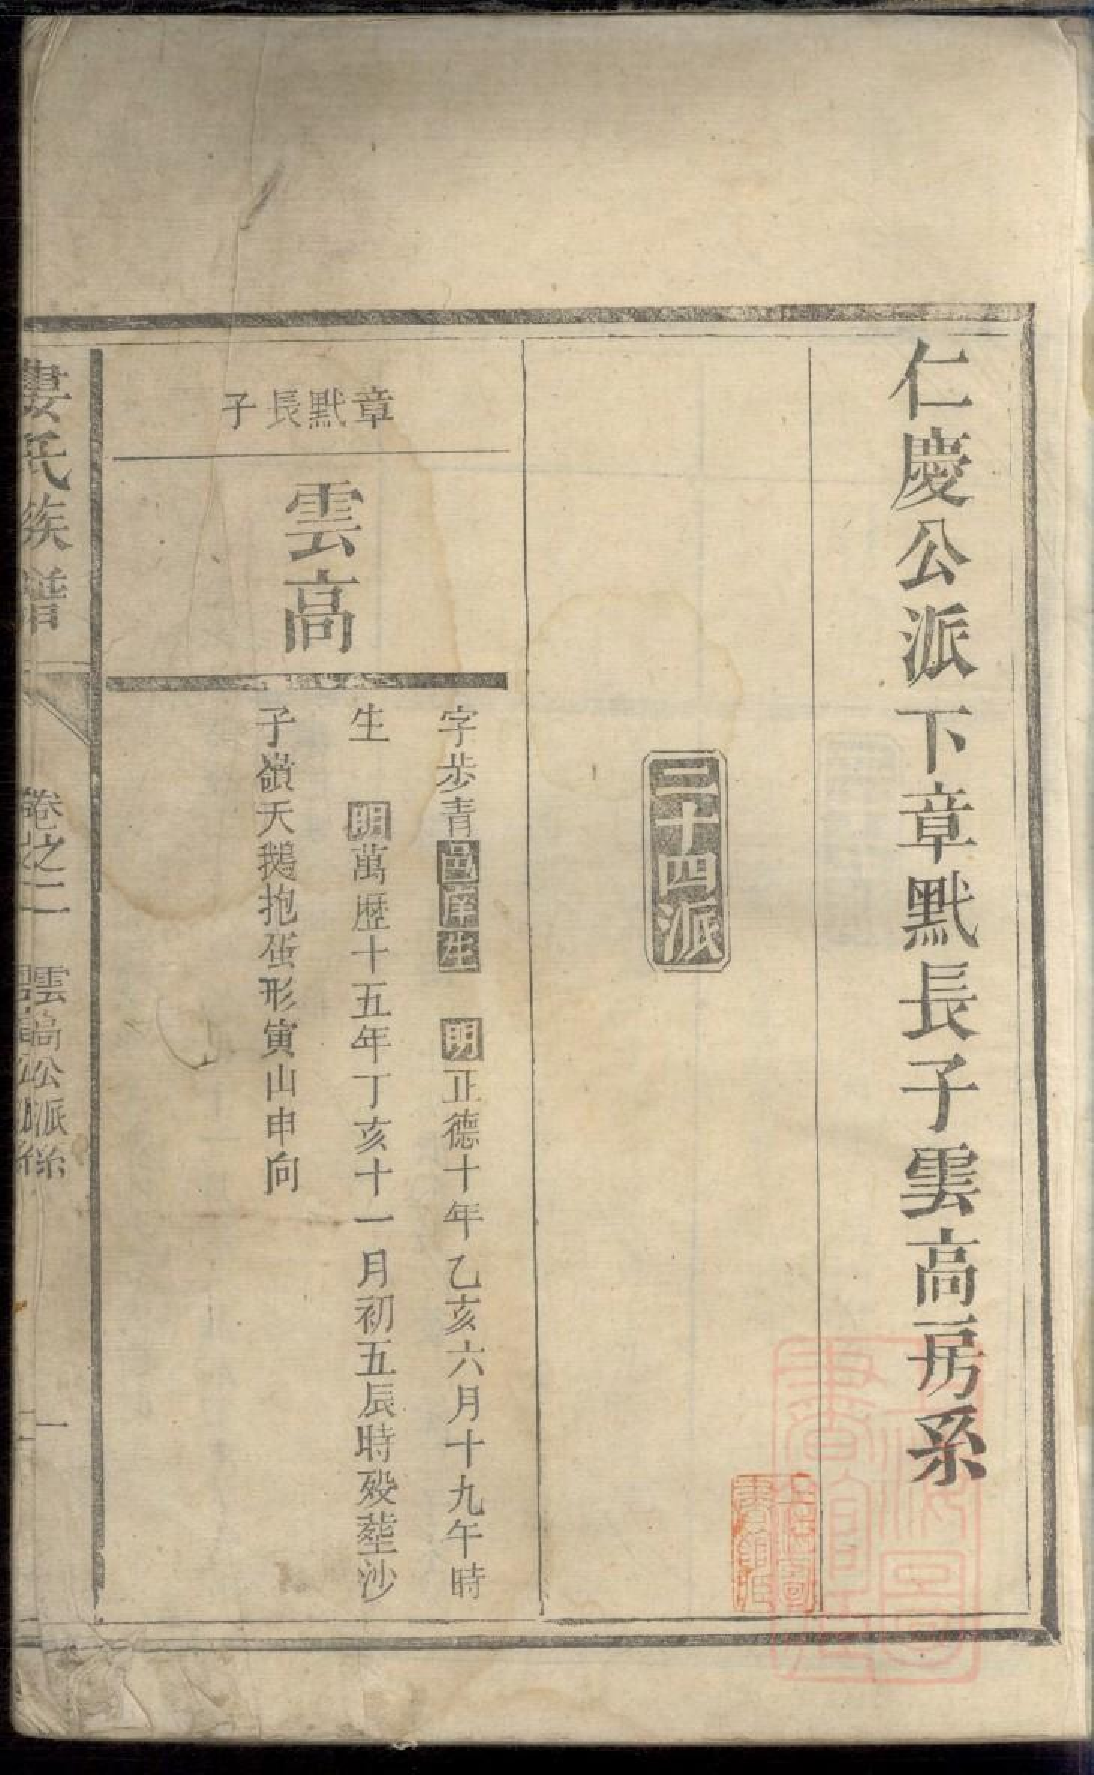 仁慶公派下章默長子雲高房系
二十四派
章默長子
雲高
字步青邑庠生　明正德十年乙亥六月十九午時
生　明萬歷十五年丁亥十一月初五辰時殁塟沙
子嶺天鵝抱蛋形寅山申向
婁氏族譜
卷之二　雲高公派系
一